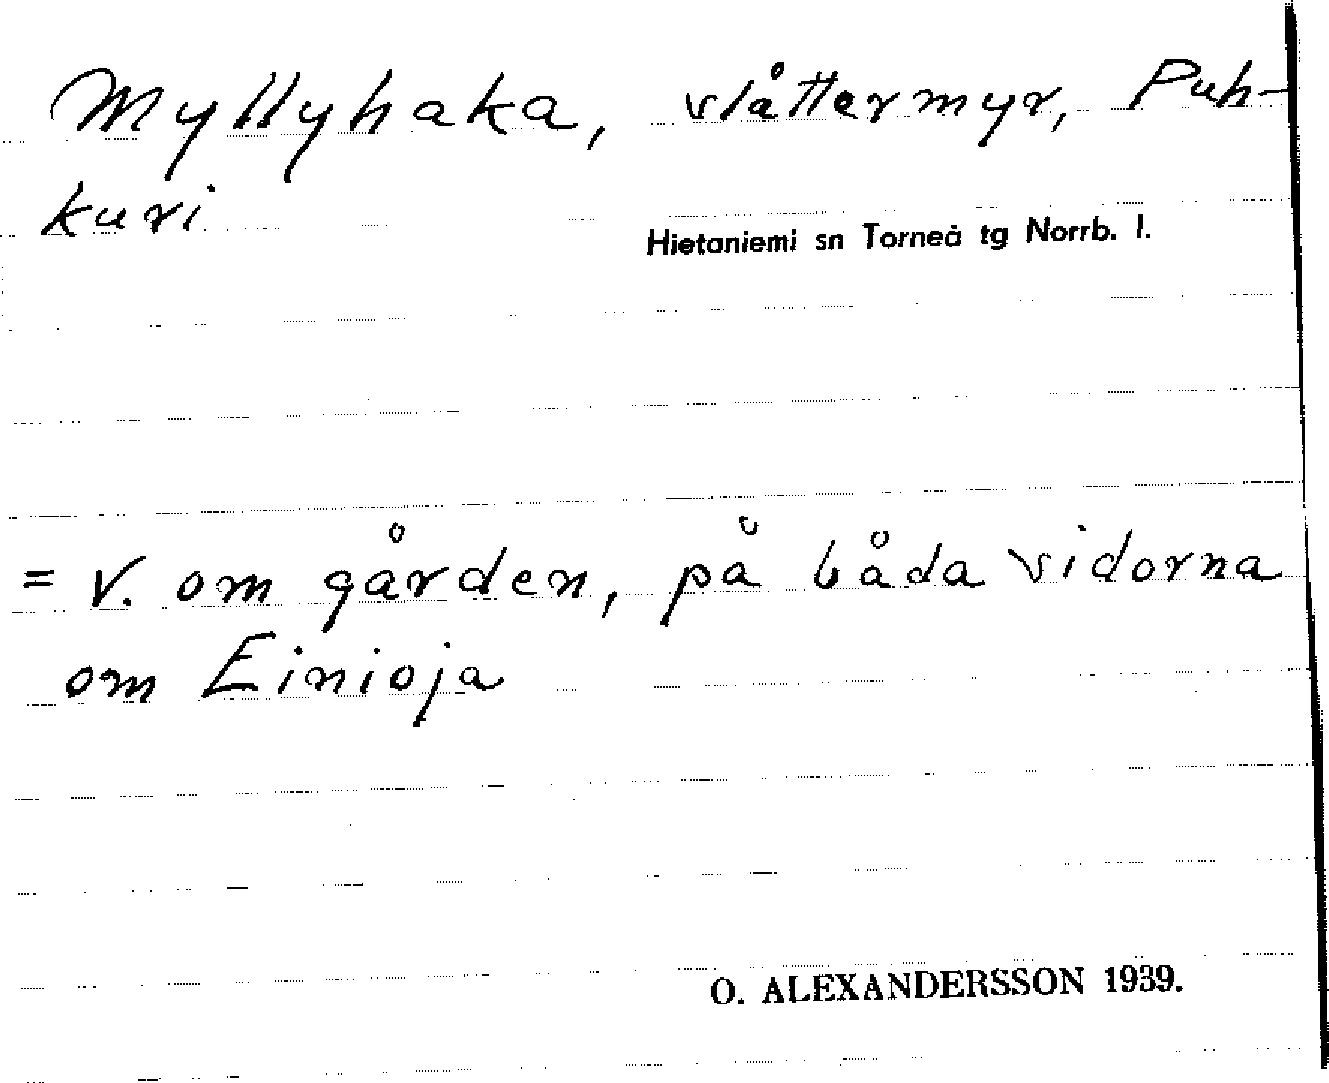 Myllyhaka, slåttermyr, Puh-
kuri
Hietaniemi sn Torneå tg Norrb. l.
= V. om gården, på båda sidorna
om Einioja
O. ALEXANDERSSON 1939.